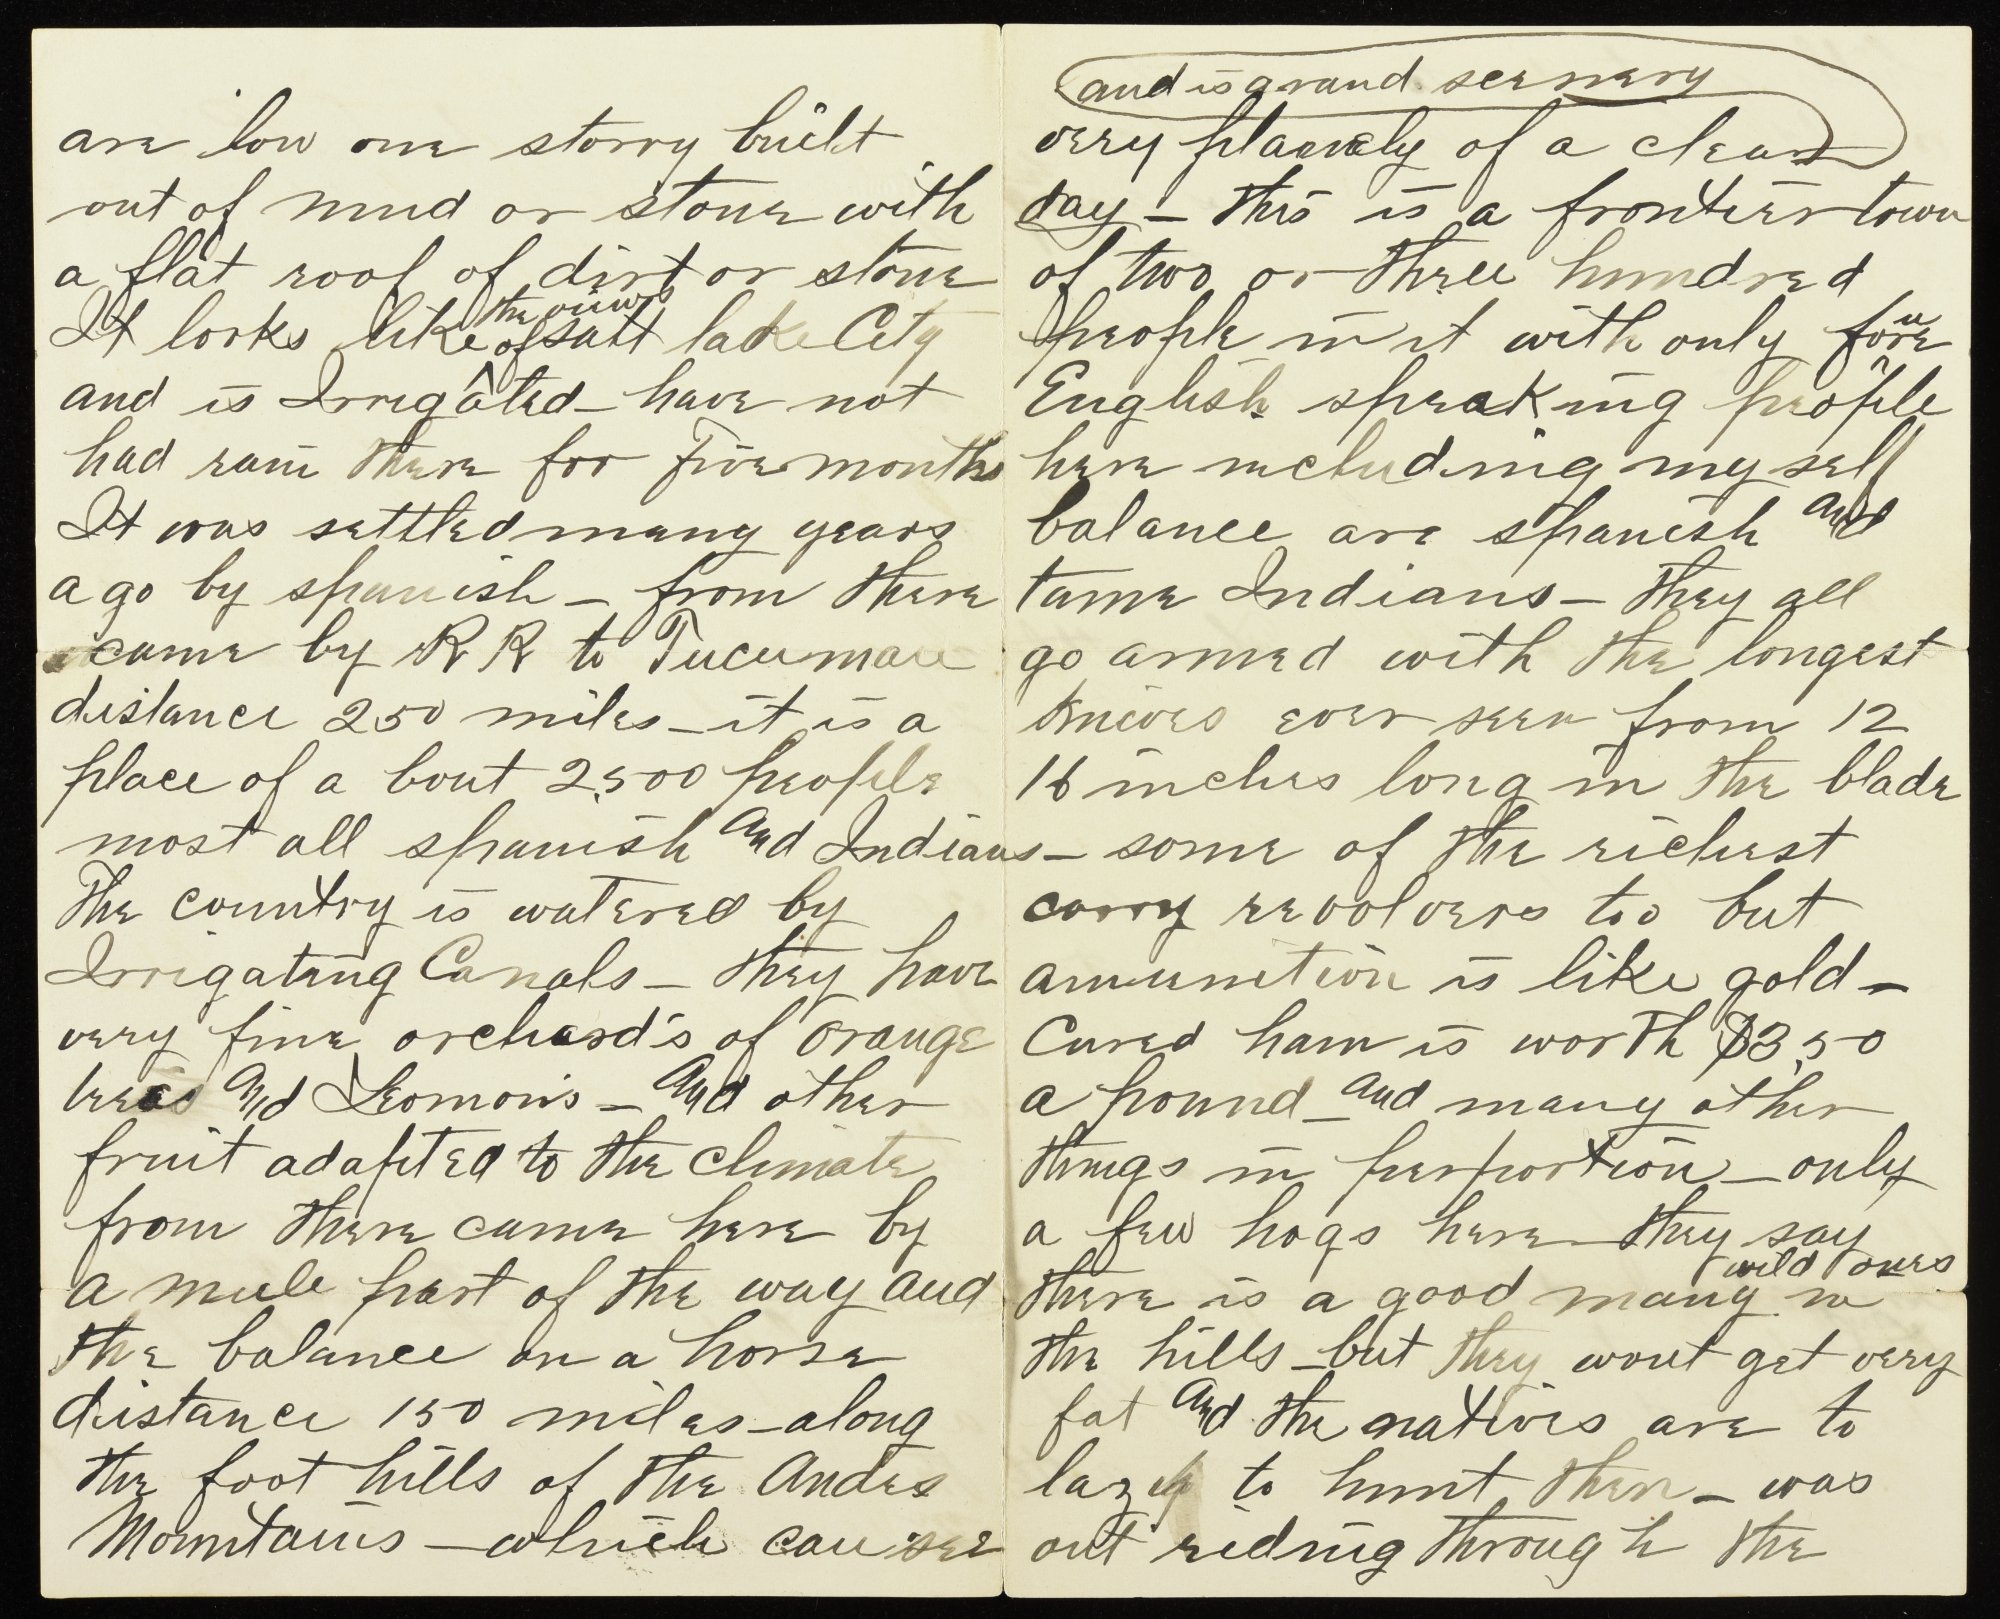 are low one storry built
out of mud or stone with
a flat roof of dirt or stone
the views
It looks like of salt lake City
and is Irrigated - have not
had rain there for Five months
It was settled many years
a go by spanish - from there
came by R R to Tucuman
distance 250 miles - it is a
place of a bout 2500 people
most all spanish and Indians
The country is watered by
Irrigating Canals - they have
very fine orchard's of orange
trees and Leomon's - and other
fruit adapted to the climate
from there came here by
a mule part of the way and
the balance on a horse
distance 150 miles - along
the foot hills of the Andes
Mountains - which can see
and is grand seenery
very planely of a clear
day - this is a frontier town
of two or three hundred
people in it with only four
English speaking people
here including my self
balance are spanish and
tame Indians - they all
go armed with the longest
knives ever seen from 12
16 inches long in the blade
- some of the richest
carry revolvers too but
amunition is like gold -
Cured ham is worth $3,50
a pound - and many other
things in perportion - only
a few hogs here - they say
wild ones
there is a good many in
the hills - but they wont get very
fat and the natives are to
lazy to hunt then - was
out riding through the